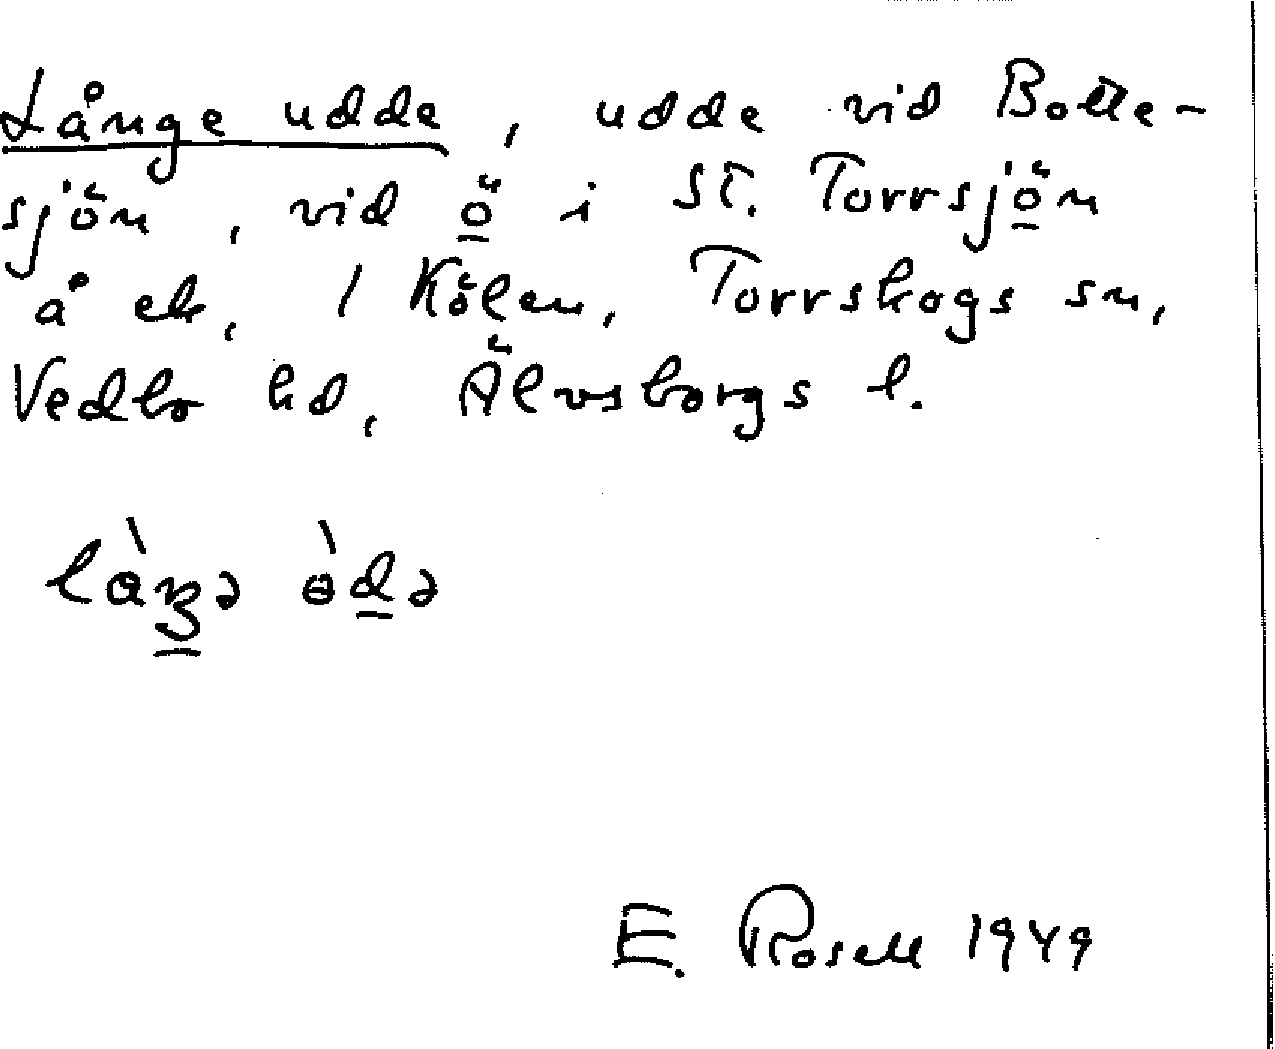 Långe udde, udde vid Botte-
sjön, vid ö i St. Torrsjön
å ek, 1 Kölen, Torrskogs sn,
Vedbo hd, Älvsborgs l.
E. Rosell 1949